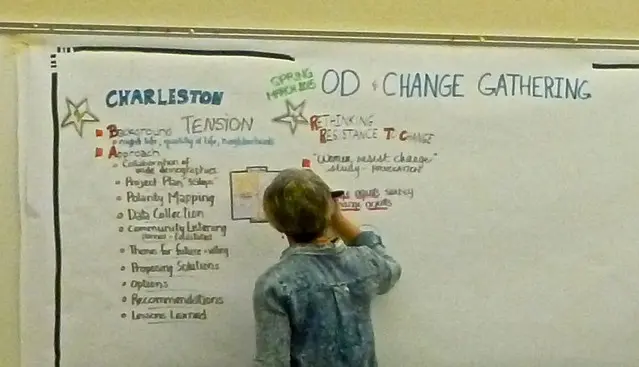 CHARLESTON
TENSION
Background
night life, quality of life, neighborhoods
Approach
Collaboration of
wide demographics
Project Plan "scope"
Polarity Mapping
Data Collection
Community Listening
Theme for future-voting
Proposing Solutions
Options
Recommendations
Lessons Learned
SPRING
MARCH 2015
OD & CHANGE GATHERING
RETHINKING
RESISTANCE TO CHANGE
"Women resist change"
study - PROVOCATION
survey